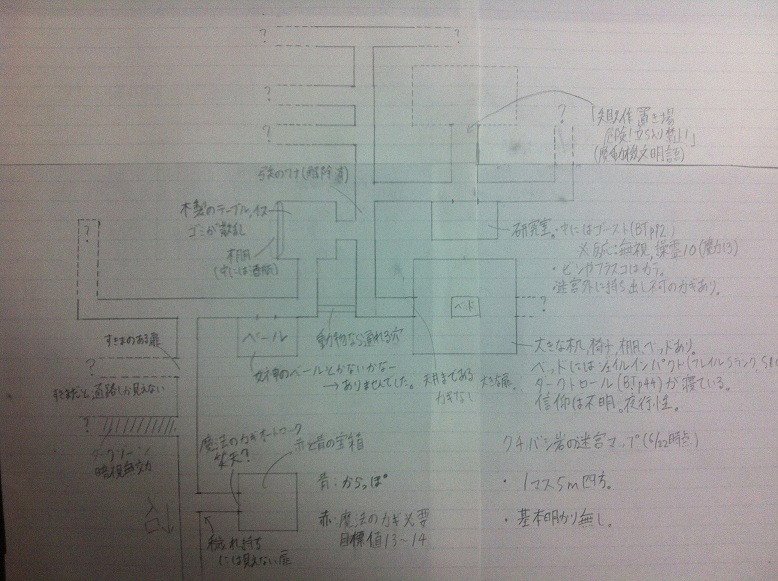 ?
?
?
?
?
「失敗作置き場
危険！立ち入り禁止！」
(魔動機文明語)
弓矢のワナ(解除済)
木製のテーブル、イス
ゴミが散乱
本棚
(中には酒瓶)
?
研究室・中にはゴースト(BTp
・ビンやフラスコはカラ。
迷宮外に持ち出し不可のカギあり。
ベッド
?
すきまのある扉
ベール
動物なら通れる穴
女神のベールとかないかなー
→ありませんでした。
天井まである
カギなし
大きな扉。
大きな机、椅子、棚、ベッドあり。
ベッドにはソイルインパクト(フレイルSランク、
ダークトロール(BTp44)が寝ている。
信仰は不明。夜行性。
?
通路しか見えない
?
暗視無効
魔法のカギ オートロック
赤と青の宝箱
青：からっぽ
赤：魔法のカギ必要
目標値13～14
穢れ持ち
には見えない扉
入口
クチバシ岩の迷宮マップ(5/22時点)
・1マス5m四方。
・基本明かり無し。